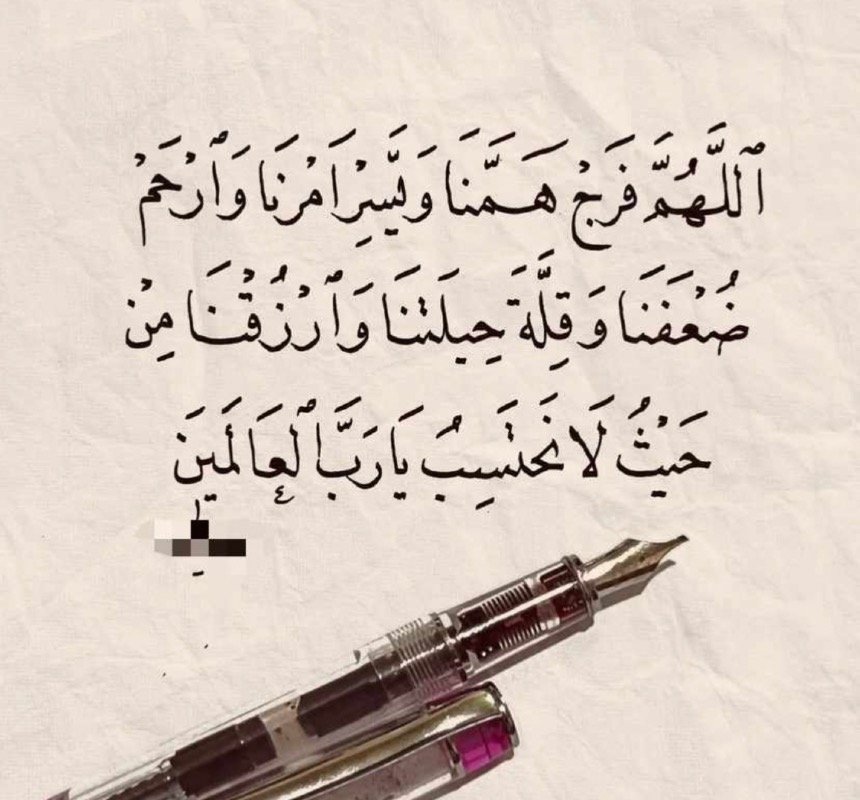 ٱللَّهُمَّ فَرَجْ هَمَّنَا وَيَسِّرْ اَمْرَنَا وَٱرْحَمْ
ضُعْفَنَا وَقِلَّةَ حِيلَتْنَا وَٱرْزُقْنَا مِنْ
حَيْثُ لَا نَحْتَسِبُ يَا رَبَّ ٱلْعَالَمَينَ